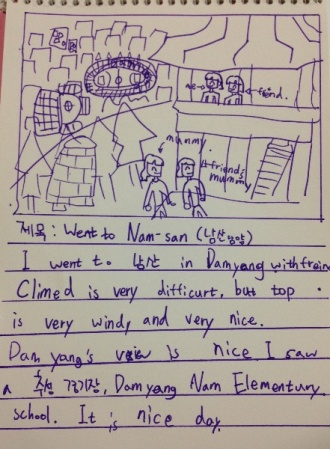 me
freind.
mummy
friend's mummy
제목: Went to Nam-san (남산 담양)
I went to 남산 in Damyang with frein
Climed is very difficurt, but top
is very windy and very nice.
Damyang's view is nice I saw
a 추성 경기장, Damyang Nam Elementury
school. It is nice day.